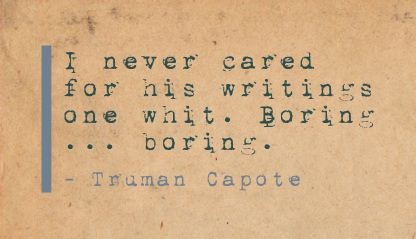 I never cared
for his writings
one whit. Boring
... boring.
- Truman Capote